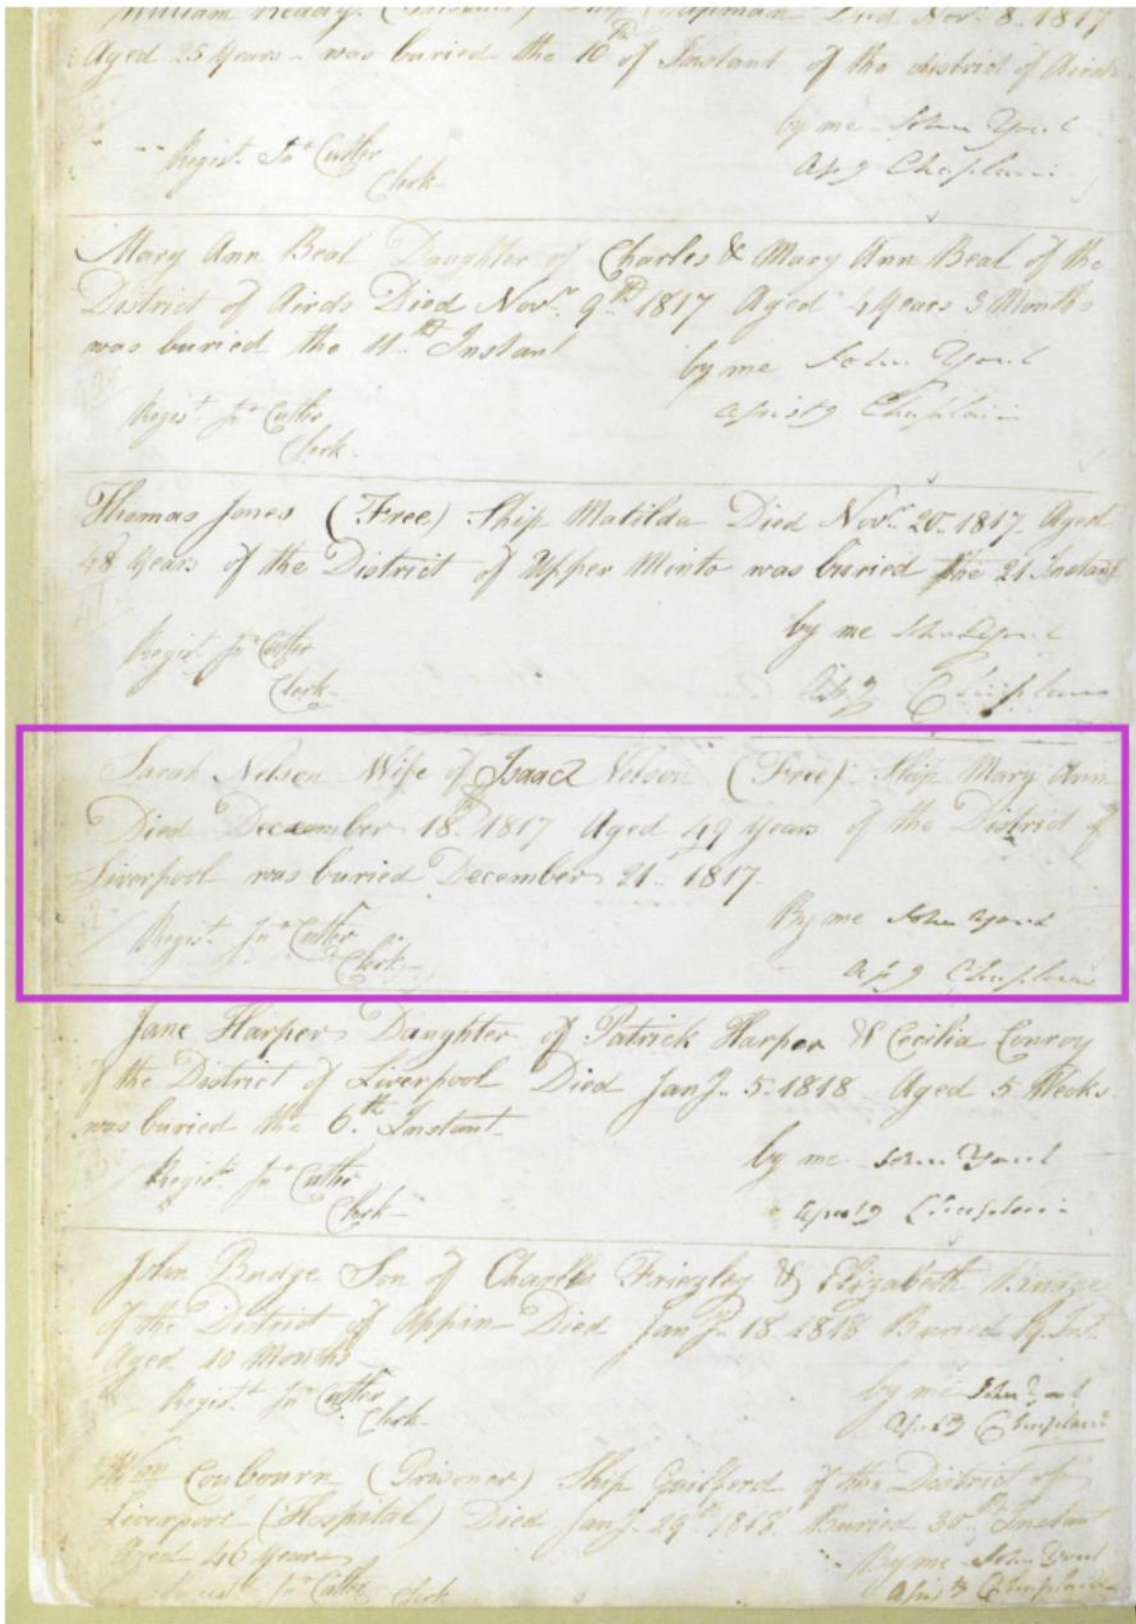 William Ready. Ship Chapman Died Nov. 8. 1817
Aged 25 Years - was buried the 10th of Instant of the district of Airds
by me John Youl
Assg Chaplain
Regist. Jno Cutler
Clerk
Mary Ann Beal Daughter of Charles & Mary Ann Beal of the
District of Airds Died Novr. 9th 1817 Aged 4 Years 3 Months
was buried the 11th Instant
by me John Youl
Assistg Chaplain
Regist. Jno Cutler
Clerk.
Thomas Jones (Free) Ship Matilda Died Novr. 20. 1817. Aged
48 Years of the District of Upper Minto was buried the 21 Instant
by me John Youl
Assg Chaplain
Regist. Jno Cutler
Clerk
Sarah Nelson Wife of Isaac Nelson (Free) Ship Mary Ann
Died December 18th 1817 Aged 49 Years of the District of
Liverpool was buried December 21.. 1817.
By me John Youl
Assg Chaplain
Regist. Jno Cutler
Clerk
Jane Harper Daughter of Patrick Harper & Cecilia Conroy
of the District of Liverpool Died Jany. 5. 1818 Aged 5 Weeks
was buried the 6th. Instant
by me John Youl
Assistg Chaplain
Regist. Jno Cutler
Clerk
John Budge Son of Charles Friezley & Elizabeth Budge
of the District of Appin Died Jany. 18 1818 Buried 19. Inst.
Aged 10 Months
by me John Youl
Assistg Chaplain
Regist. Jno Cutler
Clerk
Coubourn (Prisoner) Ship Guilford of the District of
Liverpool (Hospital) Died Jany. 29th 1818. Buried 30th Instant
Aged 46 Years
By me John Youl
Assistg Chaplain
Regist. Jno Cutler Clerk